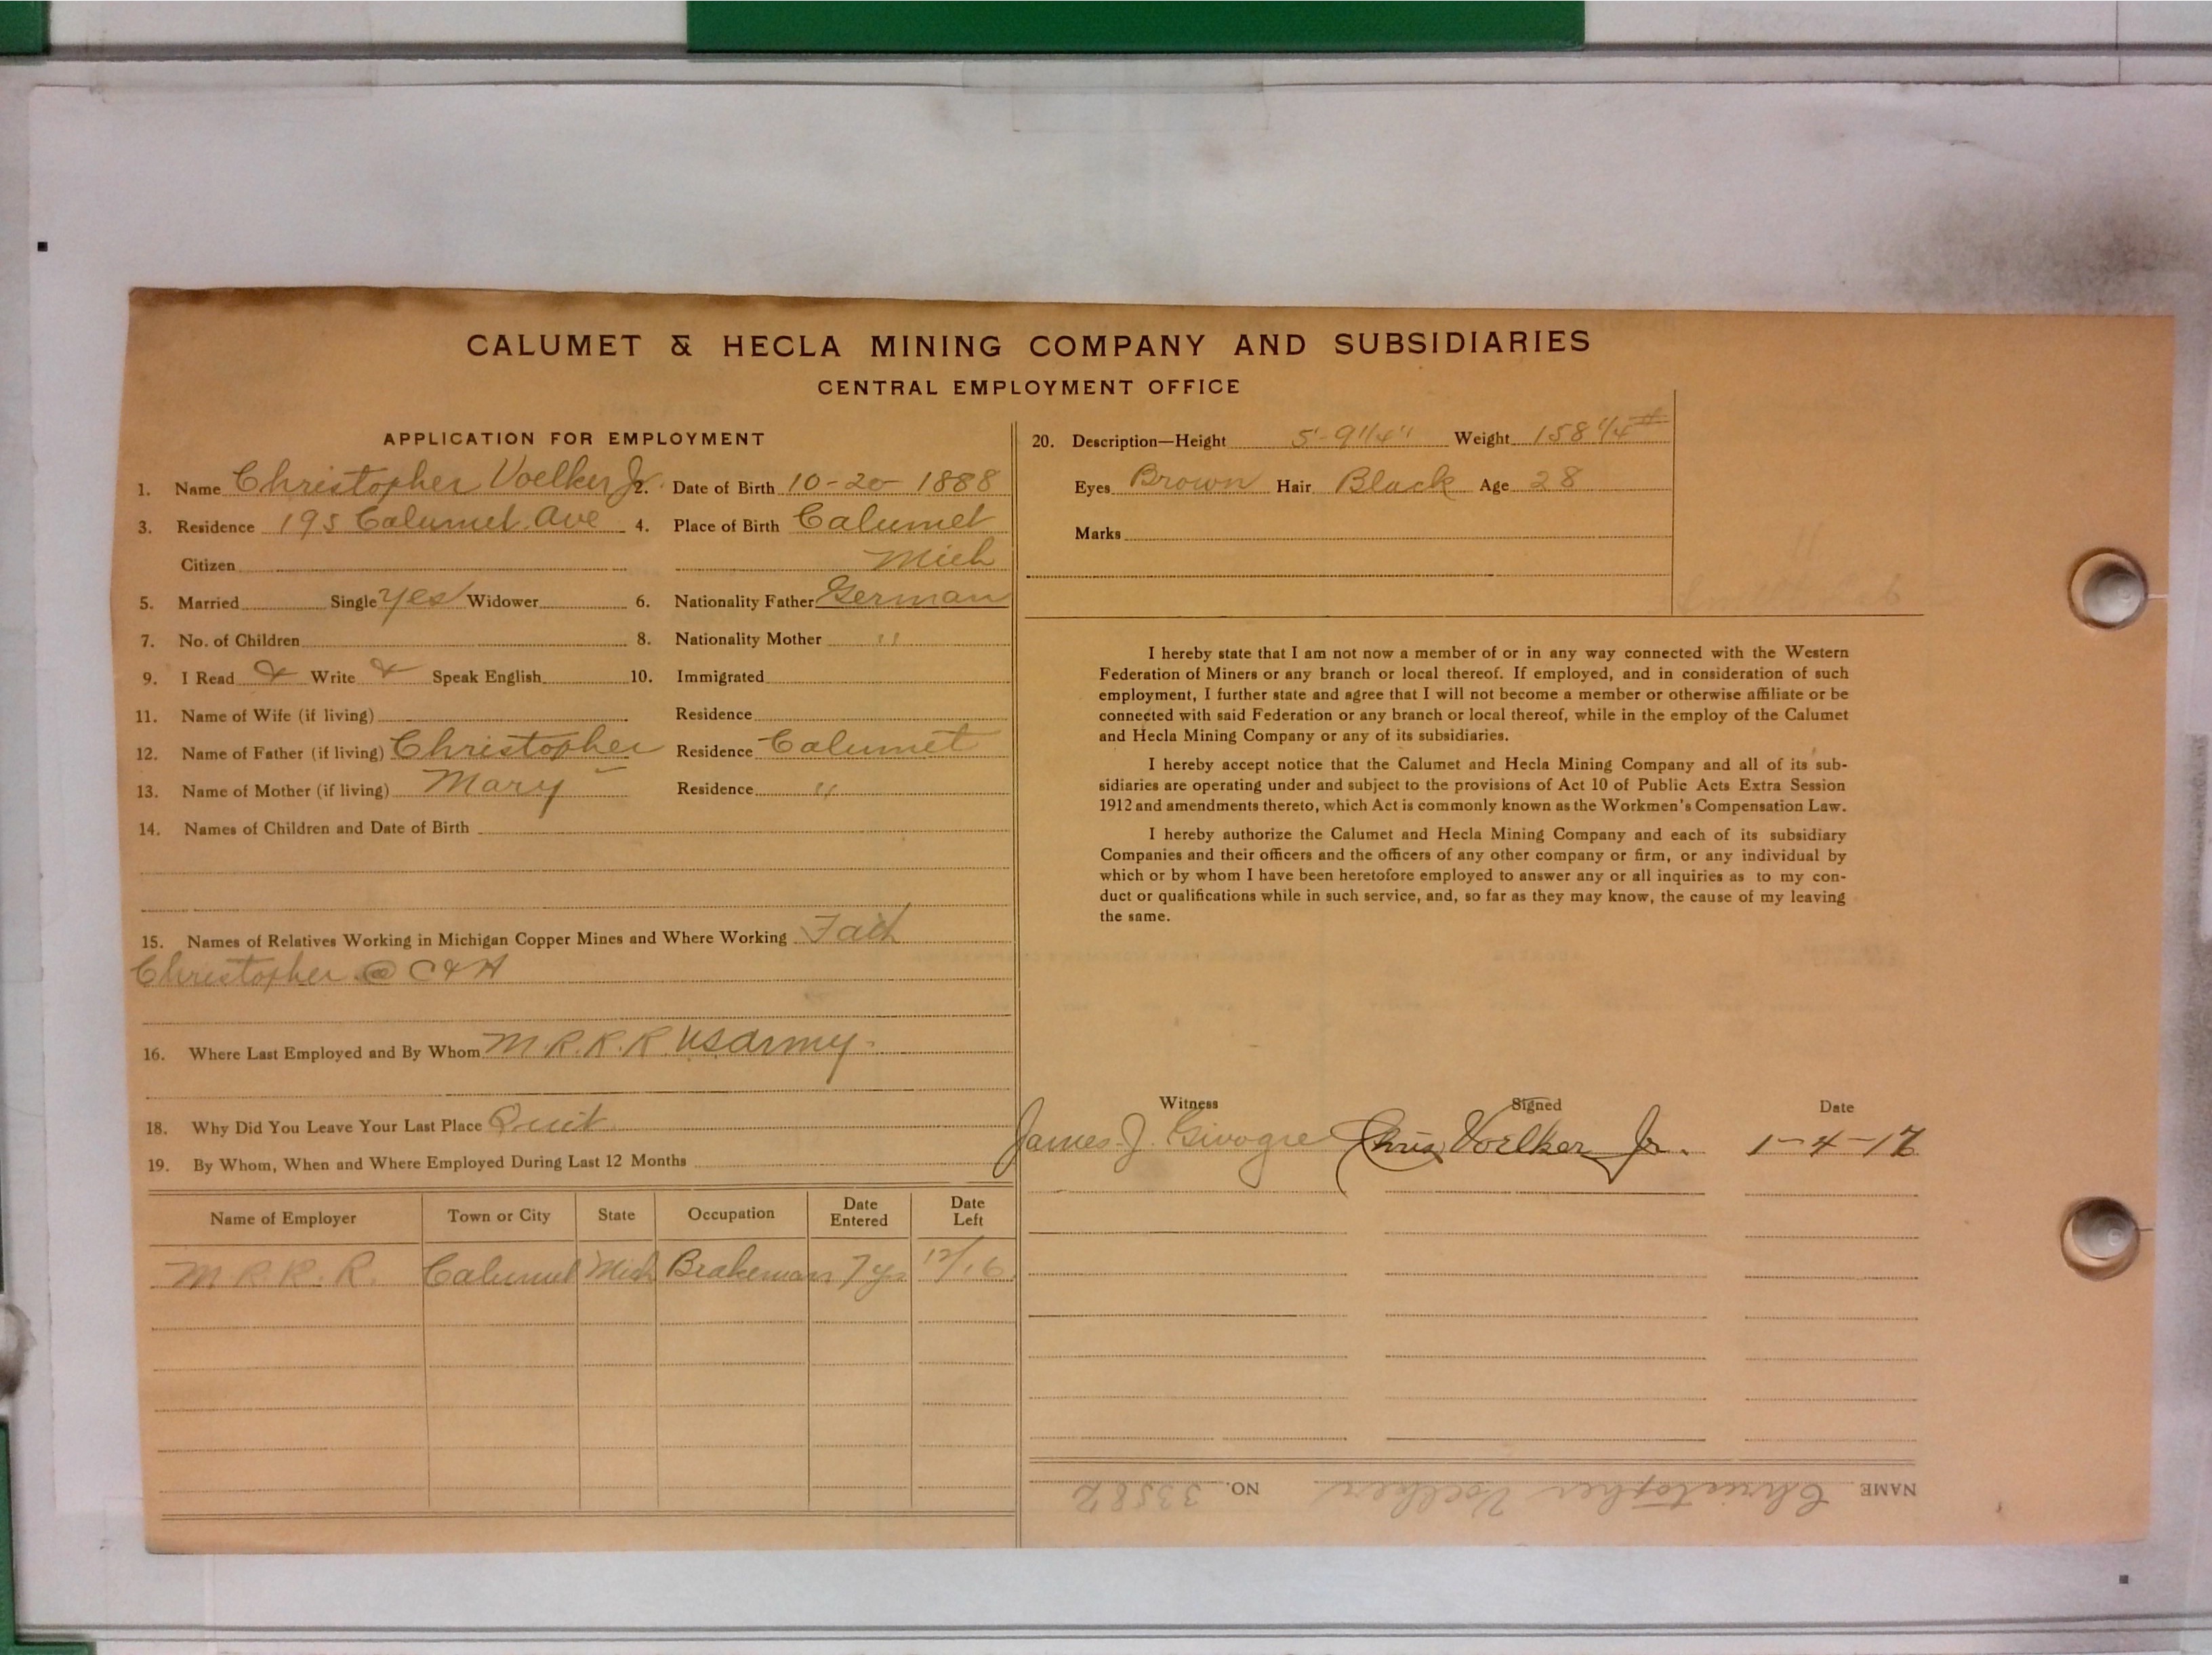 CALUMET & HECLA MINING COMPANY AND SUBSIDIARIES
CENTRAL EMPLOYMENT OFFICE
APPLICATION FOR EMPLOYMENT
1. Name Christopher Voelker Jr. 2. Date of Birth 10-20-1888
3. Residence 195 Calumet Ave 4. Place of Birth Calumet
Citizen Mich
5. Married Single yes Widower 6. Nationality Father German
7. No. of Children 8. Nationality Mother "
9. I Read & Write & Speak English 10. Immigrated
11. Name of Wife (if living) Residence
12. Name of Father (if living) Christopher Residence Calumet
13. Name of Mother (if living) Mary Residence "
14. Names of Children and Date of Birth
15. Names of Relatives Working in Michigan Copper Mines and Where Working Fath
Christopher @ C & H
16. Where Last Employed and By Whom M.R.R.R. US Army.
18. Why Did You Leave Your Last Place Quit
19. By Whom, When and Where Employed During Last 12 Months
Name of Employer Town or City State Occupation Date Entered Date Left
M R R. R. Calumet Mich Brakeman 7 yrs 12/16
20. Description—Height 5'-9 1/4" Weight 158 1/4 #
Eyes Brown Hair Black Age 28
Marks
I hereby state that I am not now a member of or in any way connected with the Western
Federation of Miners or any branch or local thereof. If employed, and in consideration of such
employment, I further state and agree that I will not become a member or otherwise affiliate or be
connected with said Federation or any branch or local thereof, while in the employ of the Calumet
and Hecla Mining Company or any of its subsidiaries.
I hereby accept notice that the Calumet and Hecla Mining Company and all of its sub-
sidiaries are operating under and subject to the provisions of Act 10 of Public Acts Extra Session
1912 and amendments thereto, which Act is commonly known as the Workmen's Compensation Law.
I hereby authorize the Calumet and Hecla Mining Company and each of its subsidiary
Companies and their officers and the officers of any other company or firm, or any individual by
which or by whom I have been heretofore employed to answer any or all inquiries as to my con-
duct or qualifications while in such service, and, so far as they may know, the cause of my leaving
the same.
Witness Signed Date
James J. Chris Voelker Jr. 1-4-17
NAME Christopher Voelker NO.